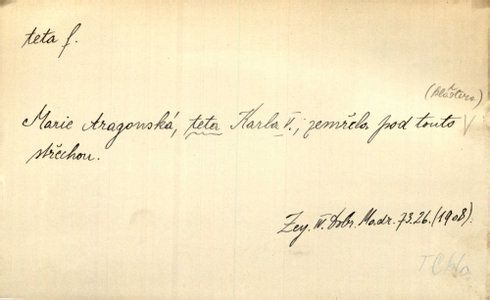 teta f.
(kláštera)
Marie Aragonská, teta Karla V., zemřela pod touto
střechou.
Zey. III. Dobr. Madr. 73.26. (1908).